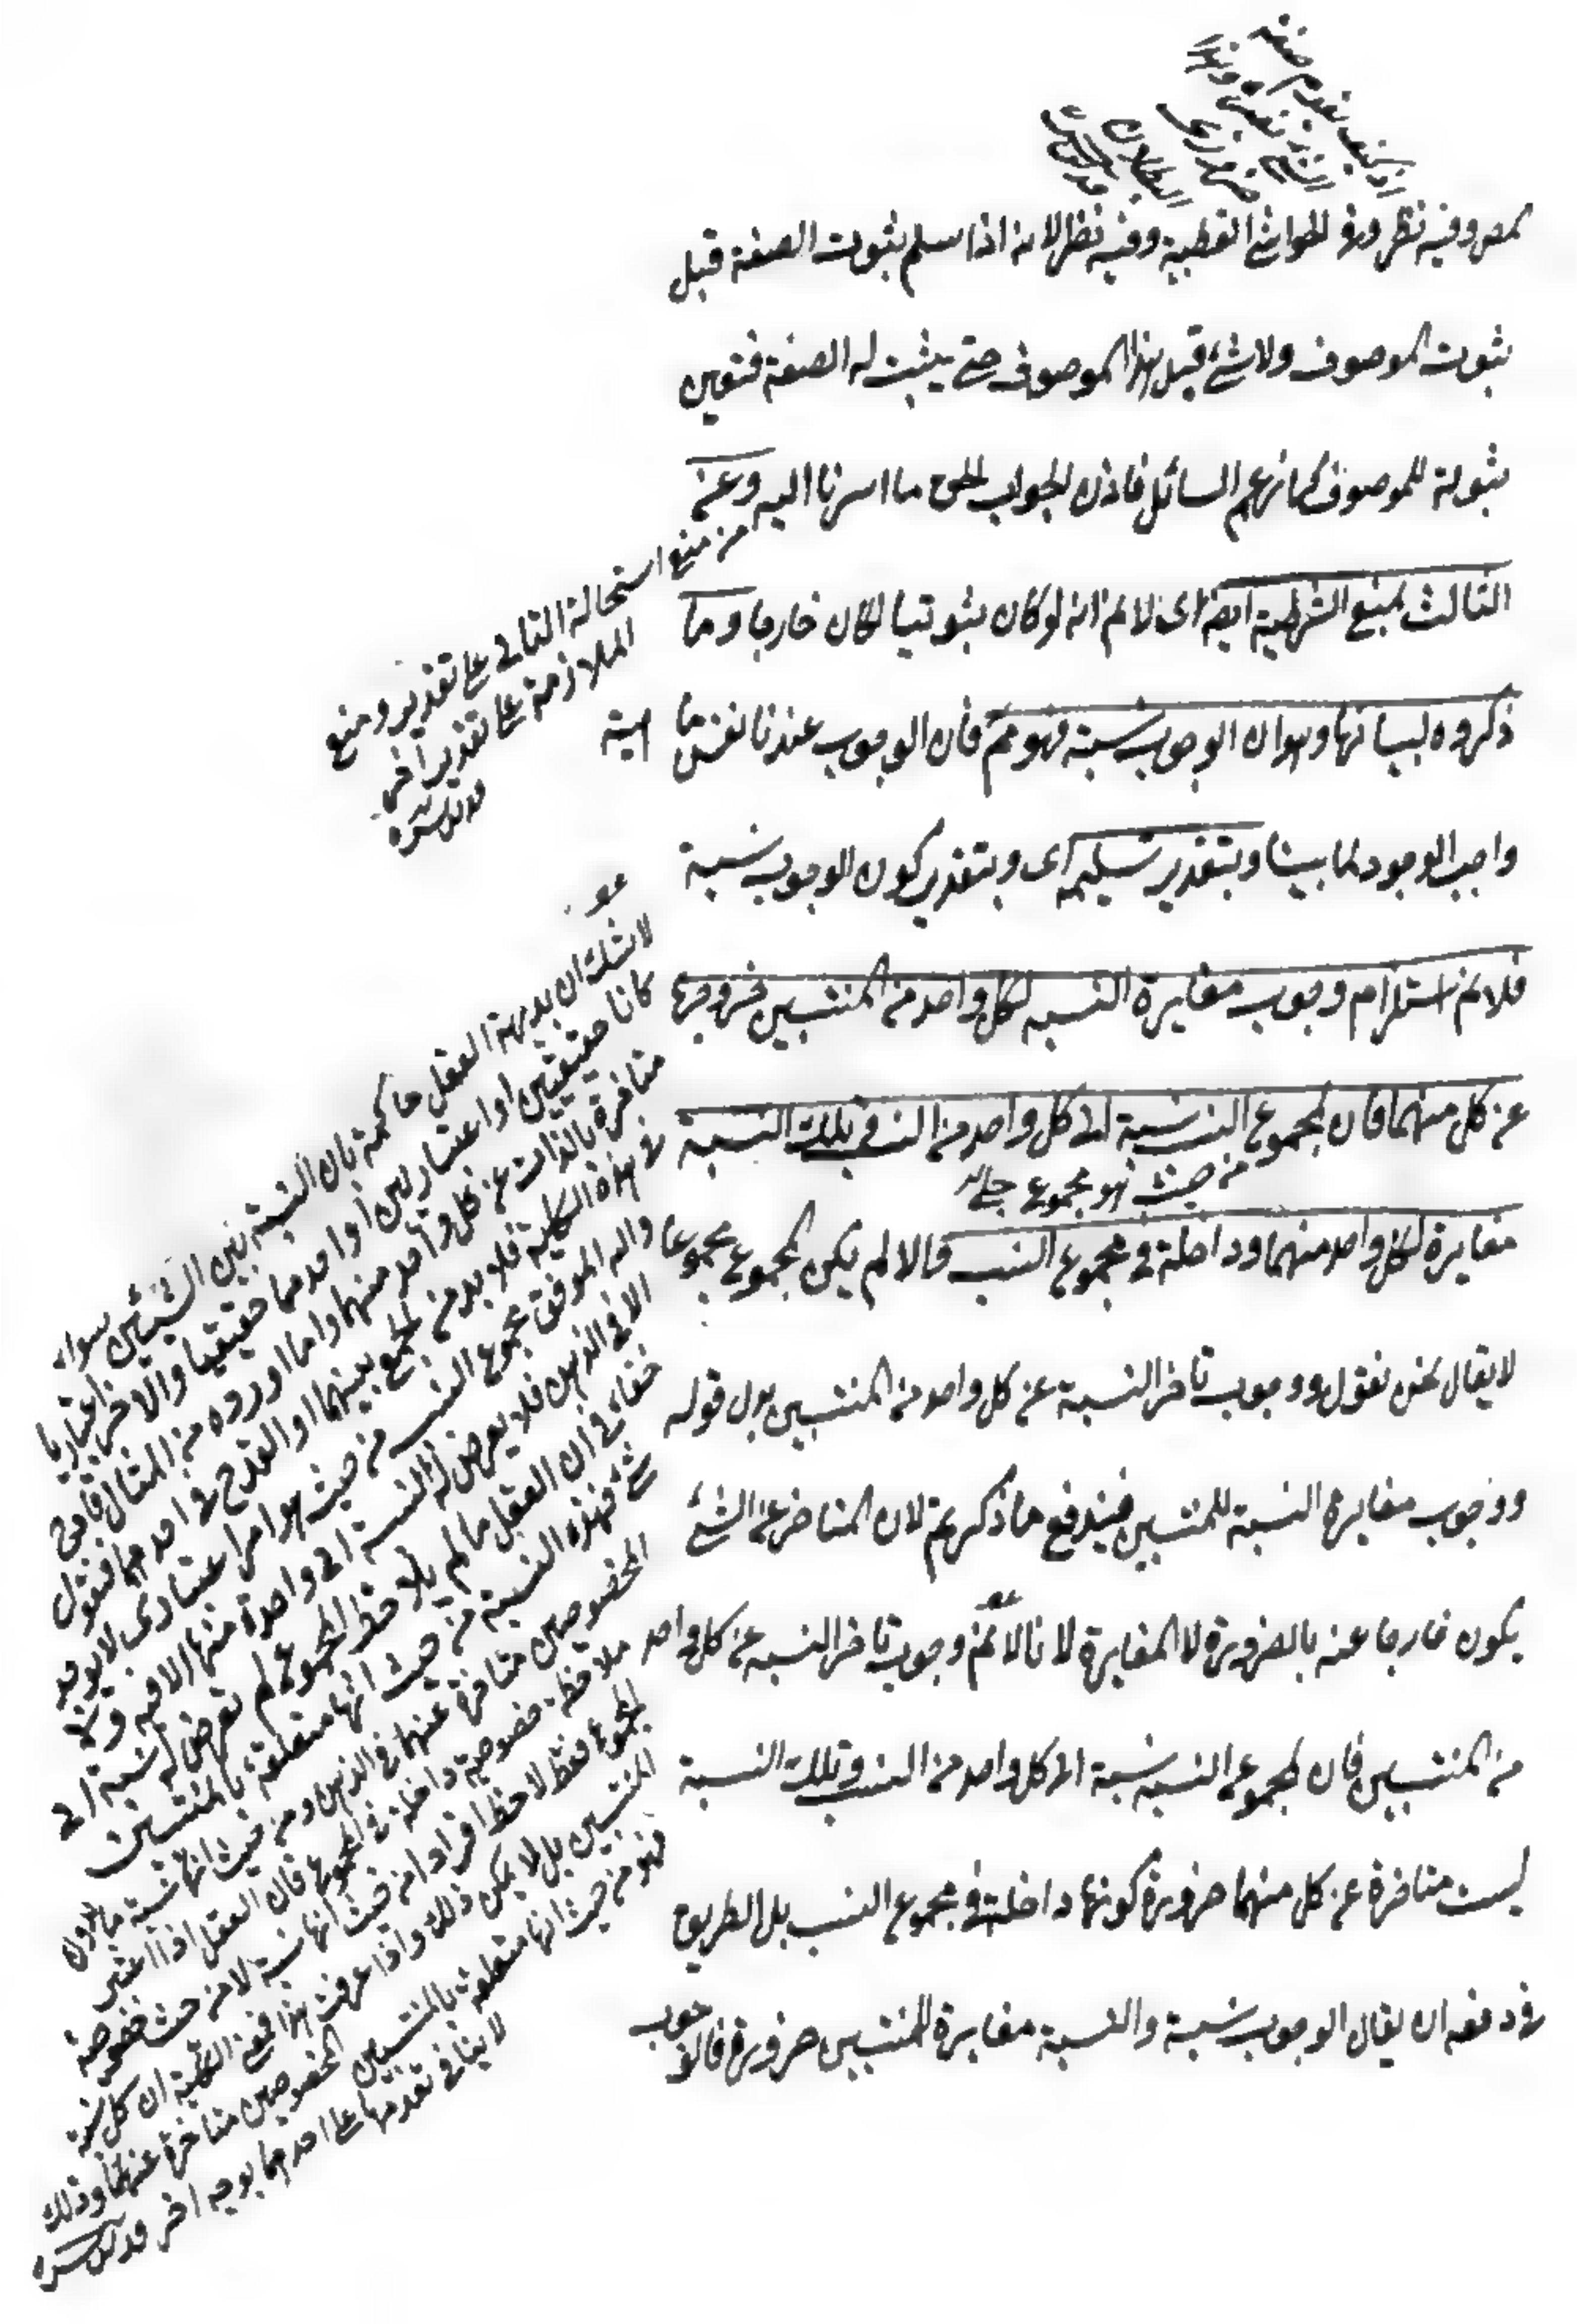 اذ كيف تقدم صفة
الشئ على نفسه وهذا
ضرورى
البطلان
قدس سره
وفيه نظر وفى الحواشى القطبية وفيه نظر لانه اذا سلم ثبوت الصفة قبل
ثبوت الموصوف ولا شئ قبل هذا الموصوف حتى يثبت له الصفة فتعين
ثبوته للموصوف كما زعم السائل فاذن الجواب الحق ما اشرنا اليه وعن
الثالث بمنع الشرطية ايضا اى لا نم انه لو كان ثبوتيا لكان خارجا وما
ذكروه لبيانها وهو ان الوجوب نسبة فهو مم فان الوجوب عندنا نفس ماهية
واجب الوجود لما بينا وبتقدير تسليمه اى وبتقدير كون الوجوب نسبة
فلا نم استلزام وجوب مغايرة النسبة لكل واحد من المنتسبين خروجها
عن كل منهما فان لمجموع النسب نسبة الى كل واحد من النسب وتلك النسبة
من حيث هو مجموع
مغايرة لكل واحد منهما وداخلة فى مجموع النسب والا لم يكن المجموع مجموعا
لا يقال نحن نقول ووجوب تاخر النسبة عن كل واحد من المنتسبين بدل قوله
ووجوب مغايرة النسبة للمنتسبين فيندفع ما ذكرتم لان المتاخر عن الشئ
يكون خارجا عنه بالضرورة لا المغاير له لانا لا نم وجوب تاخر النسبة عن كل واحد
من المنتسبين فان لمجموع النسب نسبة الى كل واحد من النسب وتلك النسبة
ليست متاخرة عن كل منهما ضرورة كونها داخلة فى مجموع النسب بل الطريق
فى دفعه ان يقال الوجوب نسبة والنسبة مغايرة للمنتسبين ضرورة فالوجوب
من منع استحالة التالى على تقدير ومنع
الملازمة على تقدير اخر
قدس سره
لا شك ان بديهة العقل حاكمة بان النسبة بين الشيئين سواء
كانا حقيقيين او اعتباريين او احدهما حقيقيا والاخر اعتباريا
متاخرة بالذات عن كل واحد منهما واما اوردوه من المثال قادح
فى هذه الكلية فلا بد من الجمع بينهما او القدح فى احدهما فنقول
والله الموفق مجموع النسب من حيث هو امر اعتبارى لا يوجد
الا فى الذهن فلا يعرض له النسبة الى واحدة منها الا فيه ولا
خفاء فى ان العقل ما لم يلاحظ المجموع لم تعرض له نسبة الى
شئ فهذه النسبة من حيث انها متعلقة بالمنتسبين
المخصوصين متاخرة عنهما فى الذهن ومن حيث انها نسبة ما بدون
ملاحظة خصوصية داخلة فى المجموع فان العقل اذا اعتبر
المجموع فقط لاحظ افراده من حيث انها نسبة لا من حيث خصوصية
المنتسبين بل لا يمكن ذلك واذا عرفت هذا فمعنى الكلية ان كل نسبة
فهو من حيث انها متعلقة بالمنتسبين المخصوصين متاخرة عنهما وذلك
لا ينافى تقدمها على احدهما بوجه اخر قدس سره